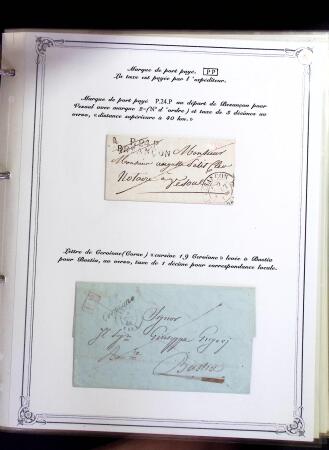 Marque de port payé. PP
La taxe est payée par l'expéditeur.
Marque de port payé P.24.P au départ de Besançon pour
Vesoul avec marque 2-(N° d'ordre) et taxe de 3 décimes au
verso, «distance supérieure à 40 km.»
P.24.P
BESANÇON
Monsieur
Monsieur
Notaire à
Vesoul
Lettre de Cervione (Corse) «cursive 19 Cervione» levée à Bastia
pour Bastia, au verso, taxe de 1 décime pour correspondance locale.
Cervione
Signor
Giuseppe
Bastia